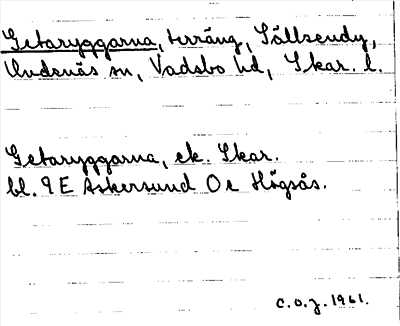 Getaryggarna, terräng, Sällsendy,
Undenäs sn, Vadsbo hd, Skar. l.
Getaryggarna, ek. Skar.
bl. 9 E Askersund 0 e Högsås.
c.o.z. 1961.